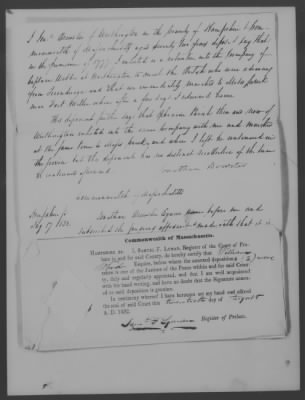 I Jonⁿ Brewster of Worthington in the County of Hampshire & Com-
monwealth of Massachusetts aged seventy four years depose & say that
in the summer of 1777 I enlisted as a volunteer into the Company of
Captain Webber at Worthington to meet the British who were advancing
from Ticonderoga and that we immediately marched to
near Fort Miller where after a few days I returned home
This deponent further says that Ephraim then also now of
Worthington enlisted into the same Company with me and marched
at the same time & and when I left he continued in
the service but this deponent has no distinct recollection of the time
he continued afterward.
Jonathan Brewster
Commonwealth of Massachusetts
Hampshire ss
Aug 17 1832. Jonathan Brewster Esquire before me and
subscribed the foregoing affidavit & made oath that it is
Commonwealth of Massachusetts.
HAMPSHIRE ss. I, SAMUEL F. LYMAN, Register of the Court of Pro-
bate in and for said County, do hereby certify that
Esquire, before whom the annexed deposition is sworn
taken is one of the Justices of the Peace within and for said Coun-
ty, duly and regularly appointed, and I am well acquainted
with his hand writing, and have no doubt that the Signature annex-
ed to said deposition is genuine.
In testimony whereof I have hereunto set my hand and affixed
the seal of said Court this twentieth day of August
A. D. 1832.
Saml F Lyman Register of Probate.